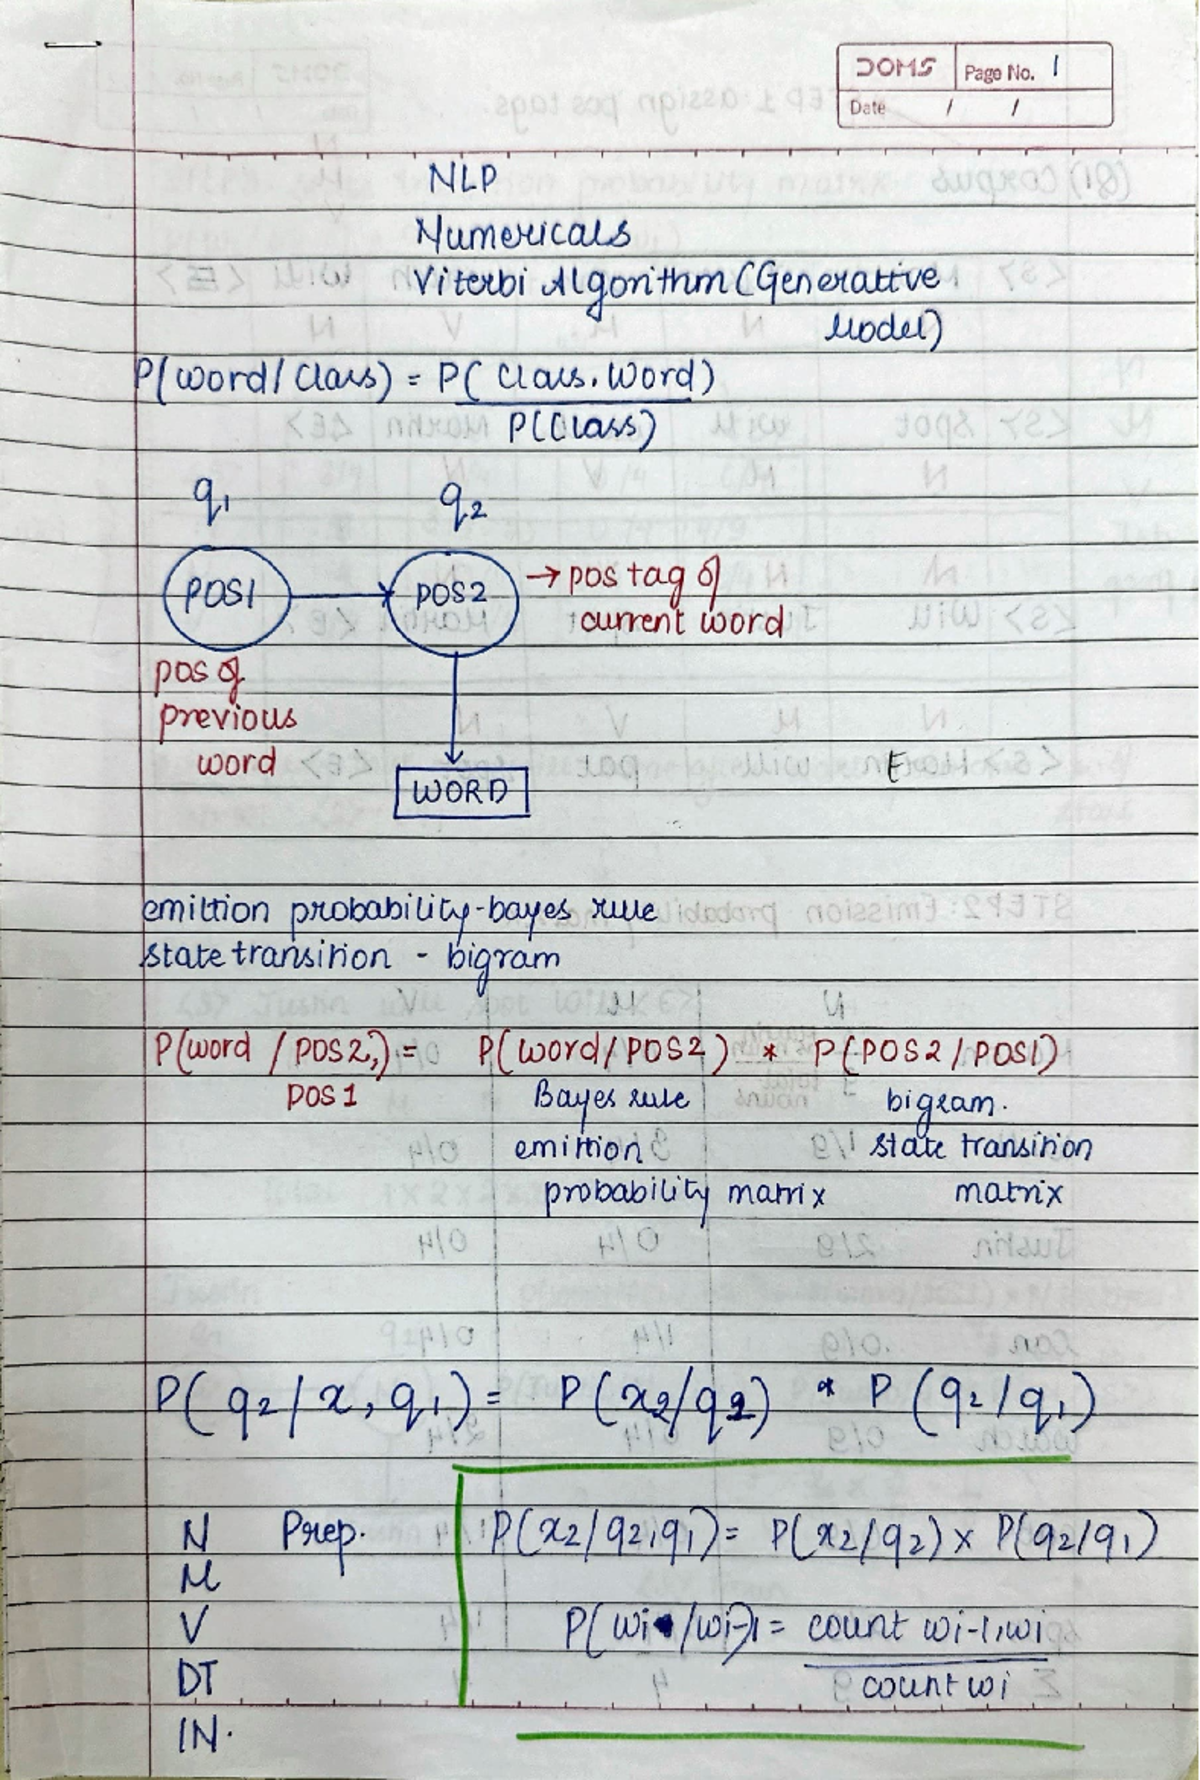 DOMS Page No. 1
Date / /
NLP
Numericals
Viterbi Algorithm (Generative
Model)
P(word/Class) = P(Class.Word)
P(Class)
q1 q2
POS1 POS2 → pos tag of
current word
pos of
previous
word
WORD
E
emittion probability-bayes rule
state transition - bigram
P(word / POS2,) = P(word/POS2) * P(POS2/POS1)
POS1 Bayes rule bigram.
emittion state transition
probability matrix matrix
P(q2/x, q1) = P(x2/q2) * P(q2/q1)
N Prep. P(x2/q2,q1) = P(x2/q2) x P(q2/q1)
M
V P(wi/wi-1) = count wi-1,wi
DT count wi
IN.